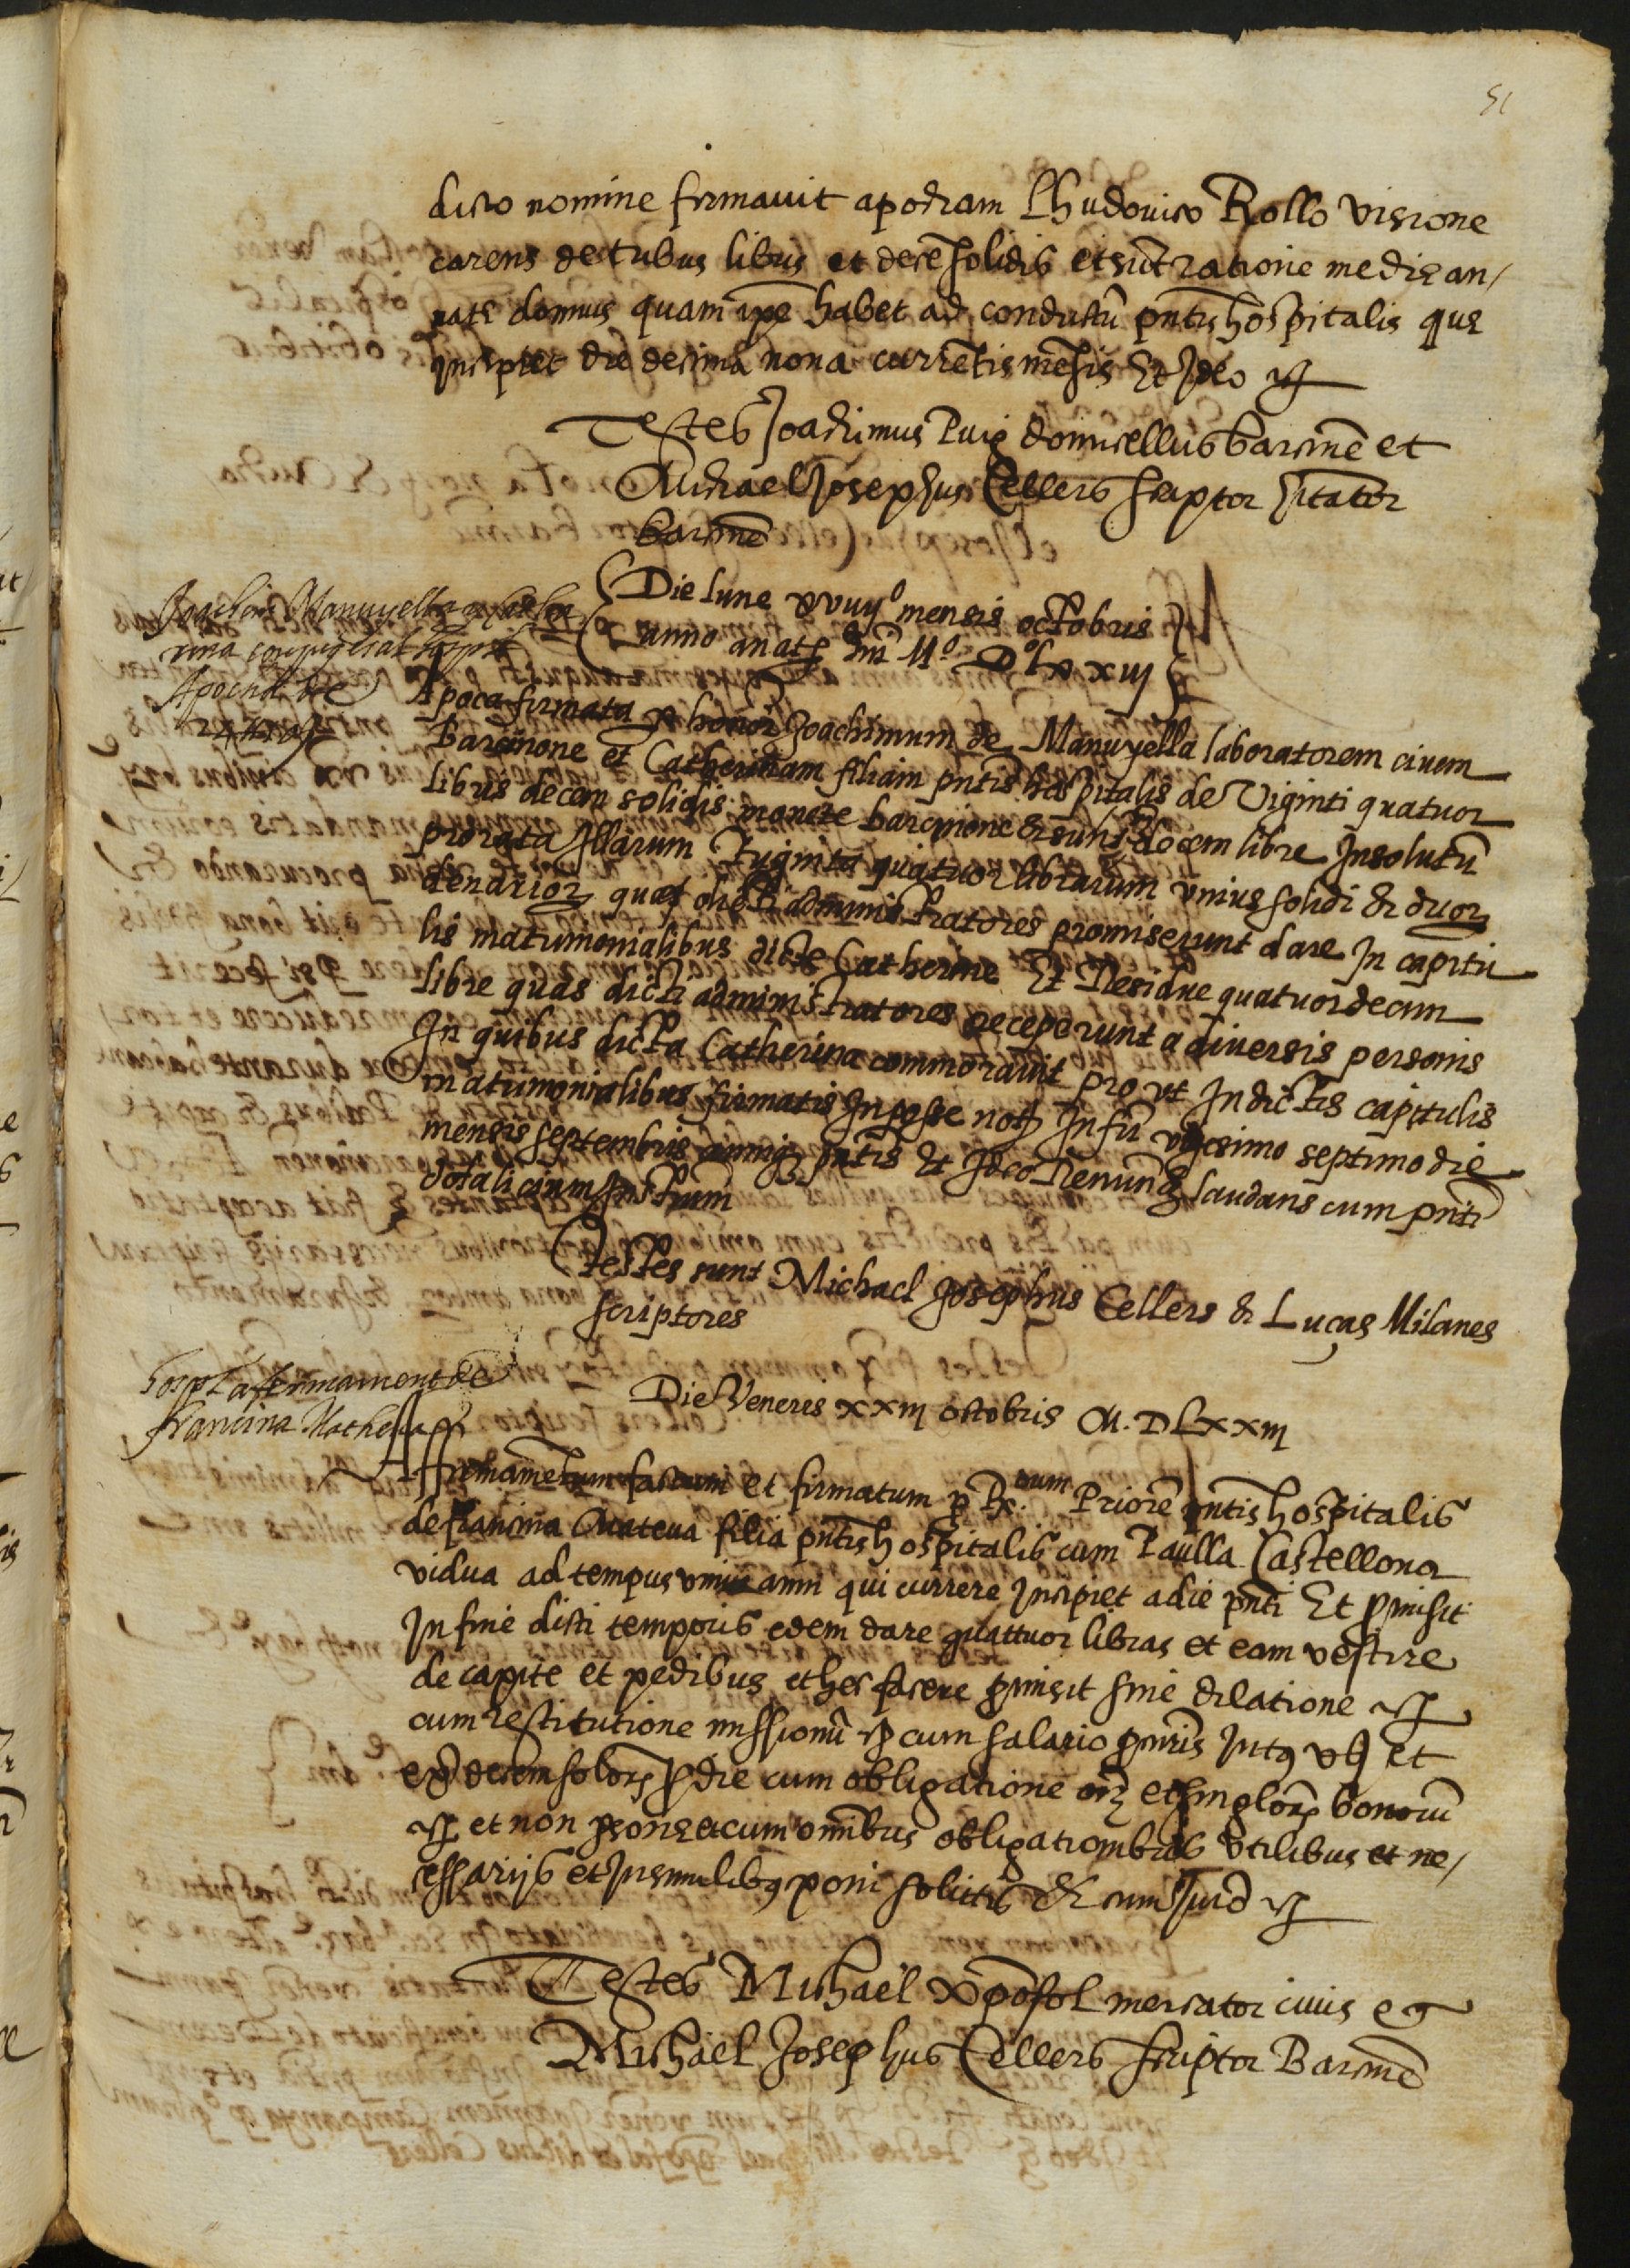 51
dicto nomine firmavit apocham Lhudovico Rollo visione
carens de tubus libris et decē solidis et sūt ratione mediæ an/
natæ domus quam ipe habet ad conductū pntis hospitalis quæ
incipiet die decima nona curretis mēsis Et Ideo &
Testes Joachimus Puig domicellus barcinē et
Michael Josephus Cellers scriptor
barcinē
Die lune xviiijº mensis octobris
anno a natte dni Mº Dº lxxiij
Joachim Manuyella
Apoca firmata p honor Joachimum de Manuyella laboratorem civem
barcinone et Catherinam filiam pntis hospitalis de Viginti quatuor
libris decem solidis monete barcinone & sunt decem libre Insolutū
prorata Illarum Triginta quatuor librarum unius solidi & duor
denarior quas dicti administratores promiserunt dare In capitu
lis matrimonialibus dicte Catherine Et Residue quatuordecim
libre quas dicti administratores receperunt a diversis personis
In quibus dicta Catherina commoravit pro ut In dictis capitulis
matrimonialibus firmatis In posse not Infri vigesimo septimo die
mensis septembris annj pntis Et Ideo Renun laudans cum pnti
dotalicium Instrum
testes sunt Michael Josephus Cellers & Lucas Milanes
scriptores
Hospl afermament de
francina Matheva
Die Veneris xxiij octobris M. D Lxxiij
Affirmamētum factum et firmatum p Rx.dum Priorē pntis hospitalis
de francina Mateva filia pntis hospitalis cum Paulla Castellona
vidua ad tempus unius anni qui currere Incipiet a die pnti Et pmisit
In fine dicti temporis edem dare quattuor libras et eam vestire
de capite et pedibus et hec facere pmisit sine dilatione &
cum restitutione missionū & cum salario pcuris Intus et
ex decem solor p die cum obligatione oīu et singlor bonorū
& et non psone et cum omnibus obligationibus utilibus et ne/
cessarijs et In similibus poni solitis & cum Jurō &
Testes Michael xpōfol mercator civis et
Michael Josephus Cellers scriptor Barcinē